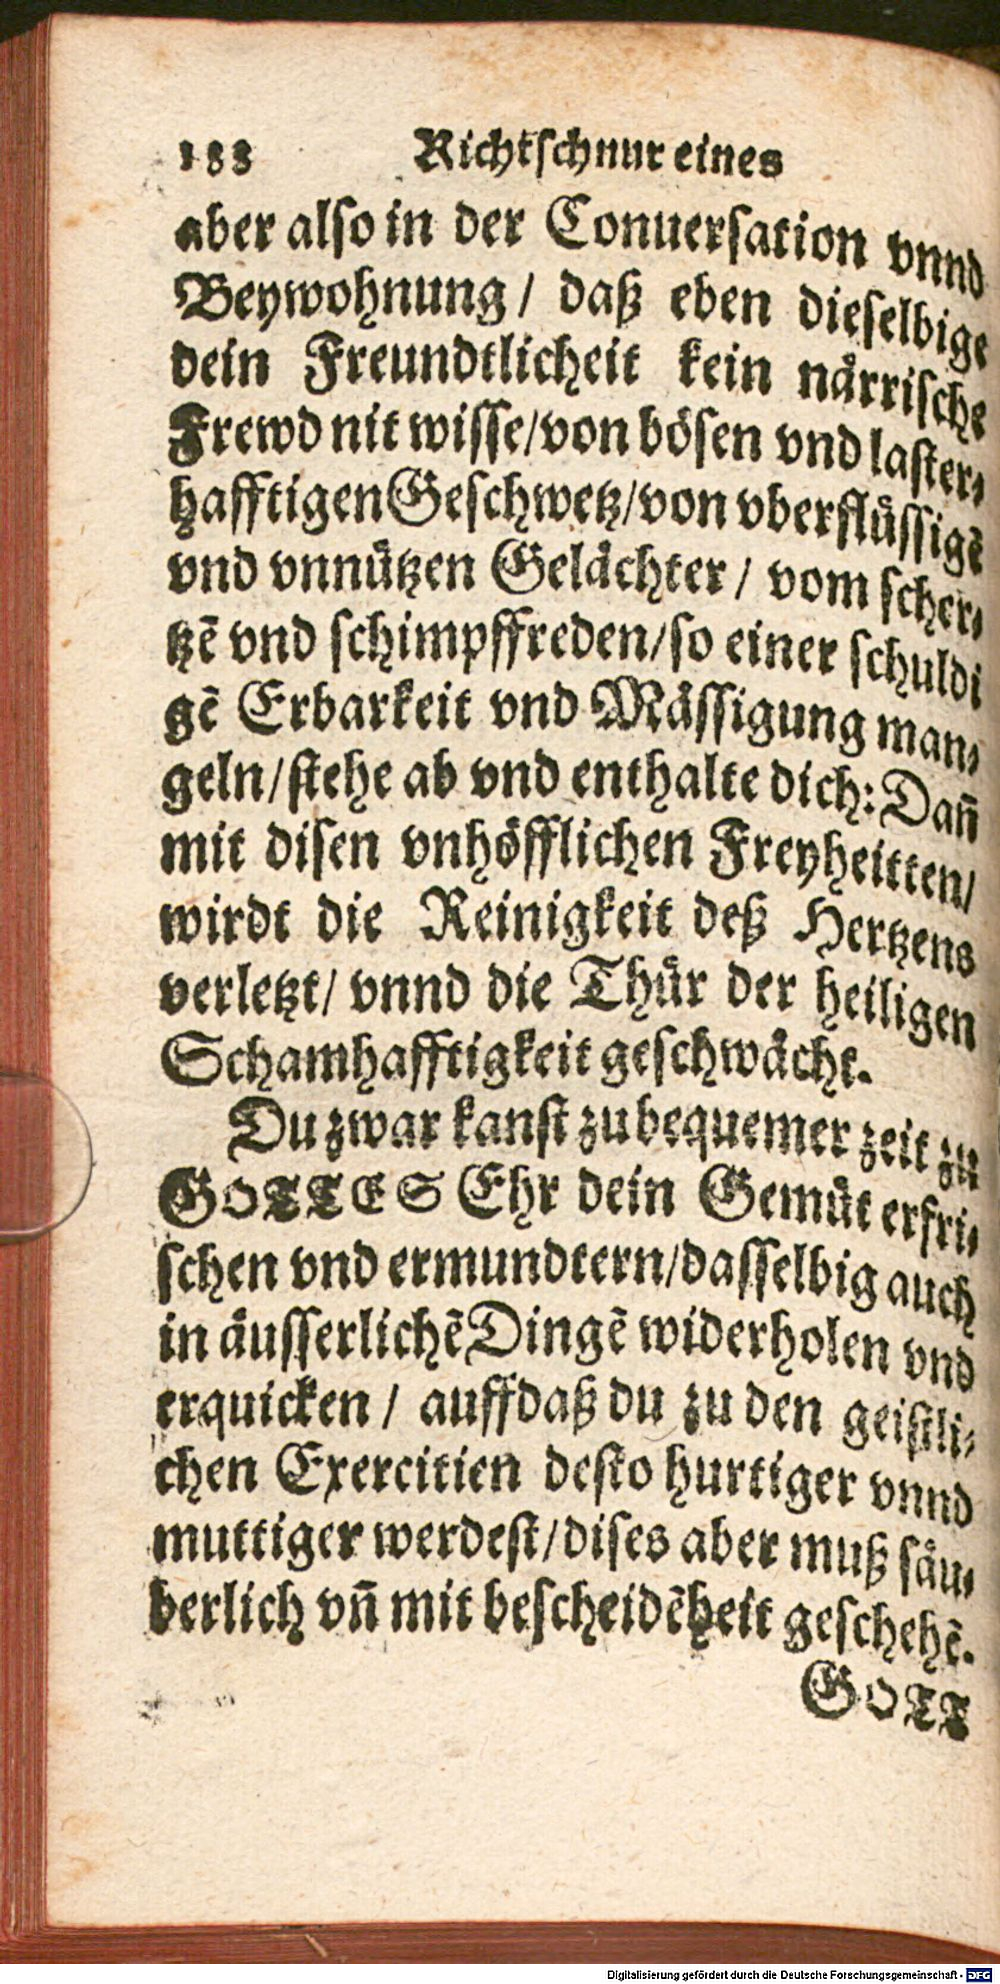 188 Richtschnur eines
aber also in der Conuersation vnnd
Beywohnung / daß eben dieselbige
dein Freundtlicheit kein nårrische
Frewd nit wisse/von bösen vnd laster⸗
hafftigen Geschwetz/von vberflüssigẽ
vnd vnnützen Gelåchter / vom scher⸗
tzẽ vnd schimpffreden/so einer schuldi
gẽ Erbarkeit vnd Måssigung man⸗
geln/stehe ab vnd enthalte dich: Dañ
mit disen vnhöfflichen Freyheitten/
wirdt die Reinigkeit deß Hertzens
verletzt/ vnnd die Thür der heiligen
Schamhafftigkeit geschwåcht.
Du zwar kanst zu bequemer zeit zu
GOTTES Ehr dein Gemüt erfri⸗
schen vnd ermundtern/dasselbig auch
in åusserlichẽ Dingẽ widerholen vnd
erquicken / auffdaß du zu den geistli⸗
chen Exercitien desto hurtiger vnnd
muttiger werdest/dises aber muß såu⸗
berlich vñ mit bescheidẽheit geschehẽ.
GOTT
Digitalisierung gefördert durch die Deutsche Forschungsgemeinschaft - DFG